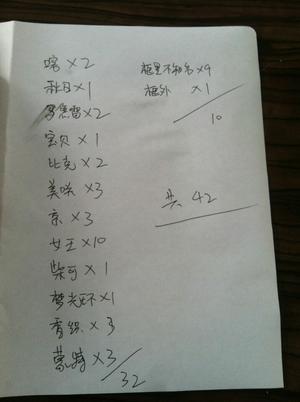 喀×2
秋日×1
罗焦雷×2
宝贝×1
比克×2
美咲×3
京×3
女王×10
柴可×1
梦光环×1
香织×3
蒙特×3
32
框里不知名×9
框外 ×1
10
共 42